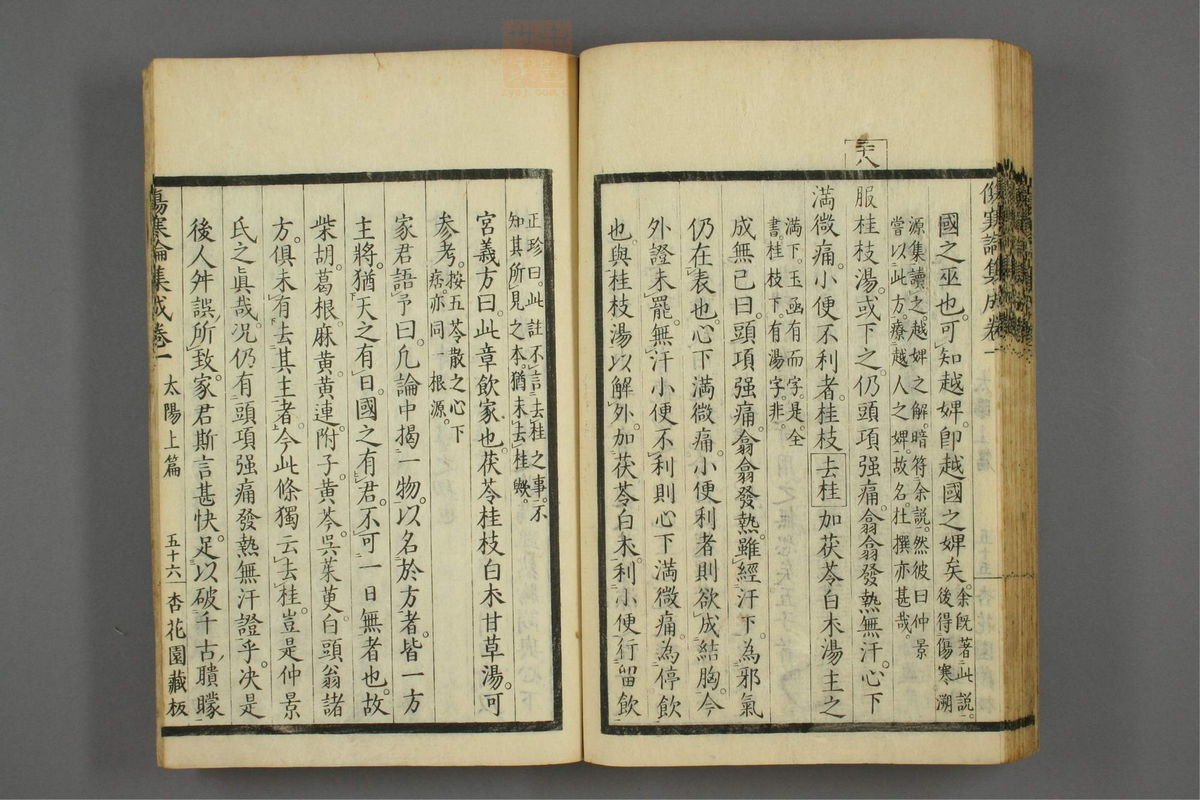 傷寒論集成卷一
國之巫也。可知越婢卽越國之婢矣。余既著此説。後得傷寒溯
源集讀之。越婢之解。暗符余説。然彼曰仲景
嘗以此方。療越人之婢。故名。杜撰亦甚哉。
服桂枝湯。或下之。仍頭項强痛。翕翕發熱無汗。心下
滿微痛。小便不利者桂枝去桂加茯苓白朮湯主之
滿下。玉函有而字。是。全
書。桂枝下。有湯字。非。
成無己曰。頭項强痛。翕翕發熱。雖經汗下。為邪氣
仍在表也。心下滿微痛。小便利者則欲成結胸。今
外證未罷。無汗小便不利則心下滿微痛。為停飲
也。與桂枝湯以解外。加茯苓白朮。利小便行留飲
正珍曰。此註不言去桂之事。不
知其所見之本。猶未去桂歟。
宮義方曰。此章飲家也。茯苓桂枝白朮甘草湯。可
參考。按五苓散之心下
痞。亦同一根源。
家君語予曰。凡論中揭一物。以名於方者。皆一方
主將。猶天之有日。國之有君。不可一日無者也。故
柴胡。葛根。麻黄。黄連。附子。黄芩。呉茱萸。白頭翁諸
方。俱未有去其主者。今此條獨云去桂。豈是仲景
氏之眞哉。况仍有頭項强痛發熱無汗證乎。决是
後人舛誤所致。家君斯言甚快。足以破千古聵矇
傷寒論集成卷一
太陽上篇
五十六
杏花園藏板